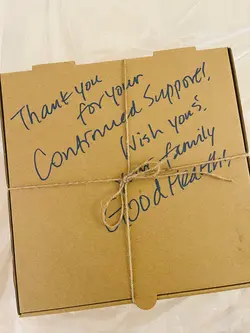 Thank you
for your
Continued Support!,
Wish yours,
family
Good Health!,